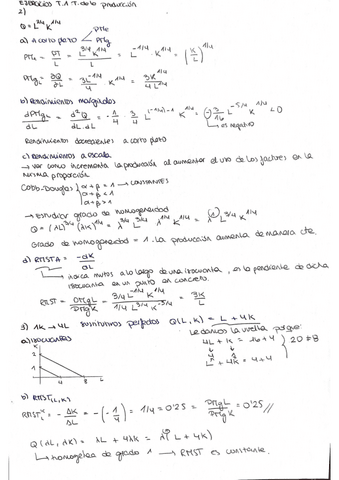 EJERCICIOS T.1 T. de la producción
2)
Q = L^3/4 K^1/4
a) A corto plazo PMe
PMg
PMe = PT/L = L^3/4 K^1/4 / L = L^-1/4 K^1/4 = (K/L)^1/4
PMgL = ∂Q/∂L = 3L^-1/4/4 K^1/4 = 3K^1/4/4L^1/4
b) Rendimientos marginales
dPMgL/dL = d²Q/dL·dL = -1/4 · 3/4 L^(-1/4)-1 K^1/4 = (-)3/16 L^-5/4 K^1/4 < 0
es negativo
Rendimientos decrecientes a corto plazo
c) Rendimientos a escala
→ ver como incrementa la producción al aumentar el uso de los factores en la
misma proporción
Cobb-Douglas { α+β = 1 → CONSTANTES
α+β < 1
α+β > 1
→ estudiar grado de homogeneidad
Q = (λL)^3/4 (λK)^1/4 = λ^3/4 L^3/4 λ^1/4 K^1/4 = λ^1 L^3/4 K^1/4
Grado de homogeneidad = 1. La producción aumenta de manera cte.
d) RMST = -∂K/∂L
indica mutos a lo largo de una isocuanta, es la pendiente de dicha
isocuanta en un punto en concreto.
RMST = PMgL/PMgK = 3/4 L^-1/4 K^1/4 / 1/4 L^3/4 K^-3/4 = 3K/L
3) 1K → 4L sustitutivos perfectos Q(L,K) = L + 4K
Le damos la vuelta porque:
a) isocuantas
4L + K = 16 + 4
L + 4K = 4 + 4
} 20 ≠ 8
K
2
1
4 8 L
b) RMST(L,K)
RMST = -ΔK/ΔL = -(-1/4) = 1/4 = 0'25 = PMgL/PMgK = 0'25 //
Q(λL, λK) = λL + 4λK = λ(L + 4K)
→ homogénea de grado 1 → RMST es constante.